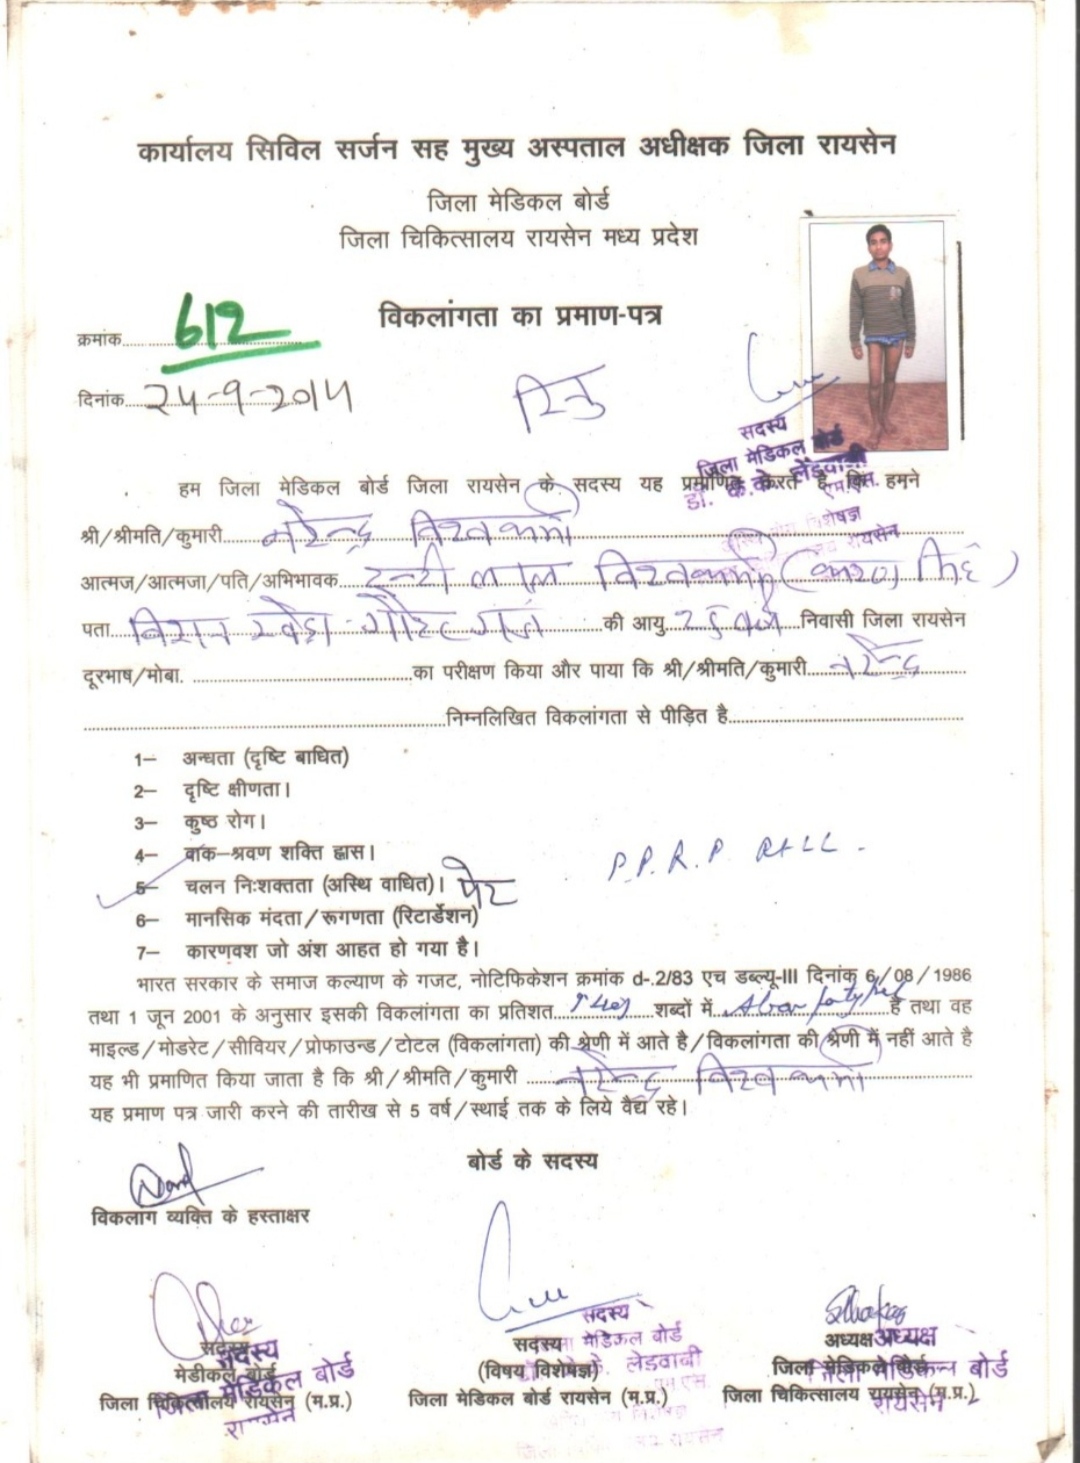 कार्यालय सिविल सर्जन सह मुख्य अस्पताल अधीक्षक जिला रायसेन
जिला मेडिकल बोर्ड
जिला चिकित्सालय रायसेन मध्य प्रदेश
विकलांगता का प्रमाण-पत्र
क्रमांक......612
दिनांक......24-9-2014
सदस्य
जिला मेडिकल बोर्ड
हम जिला मेडिकल बोर्ड जिला रायसेन के सदस्य यह प्रमाणित करते है कि हमने
श्री/श्रीमति/कुमारी......नरेन्द्र विश्वकर्मा
आत्मज/आत्मजा/पति/अभिभावक......लाल विश्वकर्मा
पता......की आयु......निवासी जिला रायसेन
दूरभाष/मोबा. ......का परीक्षण किया और पाया कि श्री/श्रीमति/कुमारी......नरेन्द्र
......निम्नलिखित विकलांगता से पीड़ित है......
1– अन्धता (दृष्टि बाधित)
2– दृष्टि क्षीणता।
3– कुष्ठ रोग।
4– वाक–श्रवण शक्ति ह्रास।
P.P.R.P.
5– चलन निःशक्तता (अस्थि वाधित)।
6– मानसिक मंदता/रूगणता (रिटार्डेशन)
7– कारणवश जो अंश आहत हो गया है।
भारत सरकार के समाज कल्याण के गजट, नोटिफिकेशन क्रमांक d-.2/83 एच डब्ल्यू-III दिनांक 6/08/1986
तथा 1 जून 2001 के अनुसार इसकी विकलांगता का प्रतिशत......शब्दों में......है तथा वह
माइल्ड/मोडरेट/सीवियर/प्रोफाउन्ड/टोटल (विकलांगता) की श्रेणी में आते है/विकलांगता की श्रेणी में नहीं आते है
यह भी प्रमाणित किया जाता है कि श्री/श्रीमति/कुमारी ......नरेन्द्र विश्वकर्मा
यह प्रमाण पत्र जारी करने की तारीख से 5 वर्ष/स्थाई तक के लिये वैद्य रहे।
बोर्ड के सदस्य
विकलांग व्यक्ति के हस्ताक्षर
सदस्य
सदस्य
मेडीकल बोर्ड
जिला मेडिकल बोर्ड
जिला चिकित्सालय रायसेन (म.प्र.)
रायसेन
सदस्य
सदस्य
मेडिकल बोर्ड
(विषय विशेषज्ञ)
जिला मेडिकल बोर्ड रायसेन (म.प्र.)
अध्यक्ष अध्यक्ष
जिला मेडिकल बोर्ड
जिला चिकित्सालय रायसेन (म.प्र.)
रायसेन